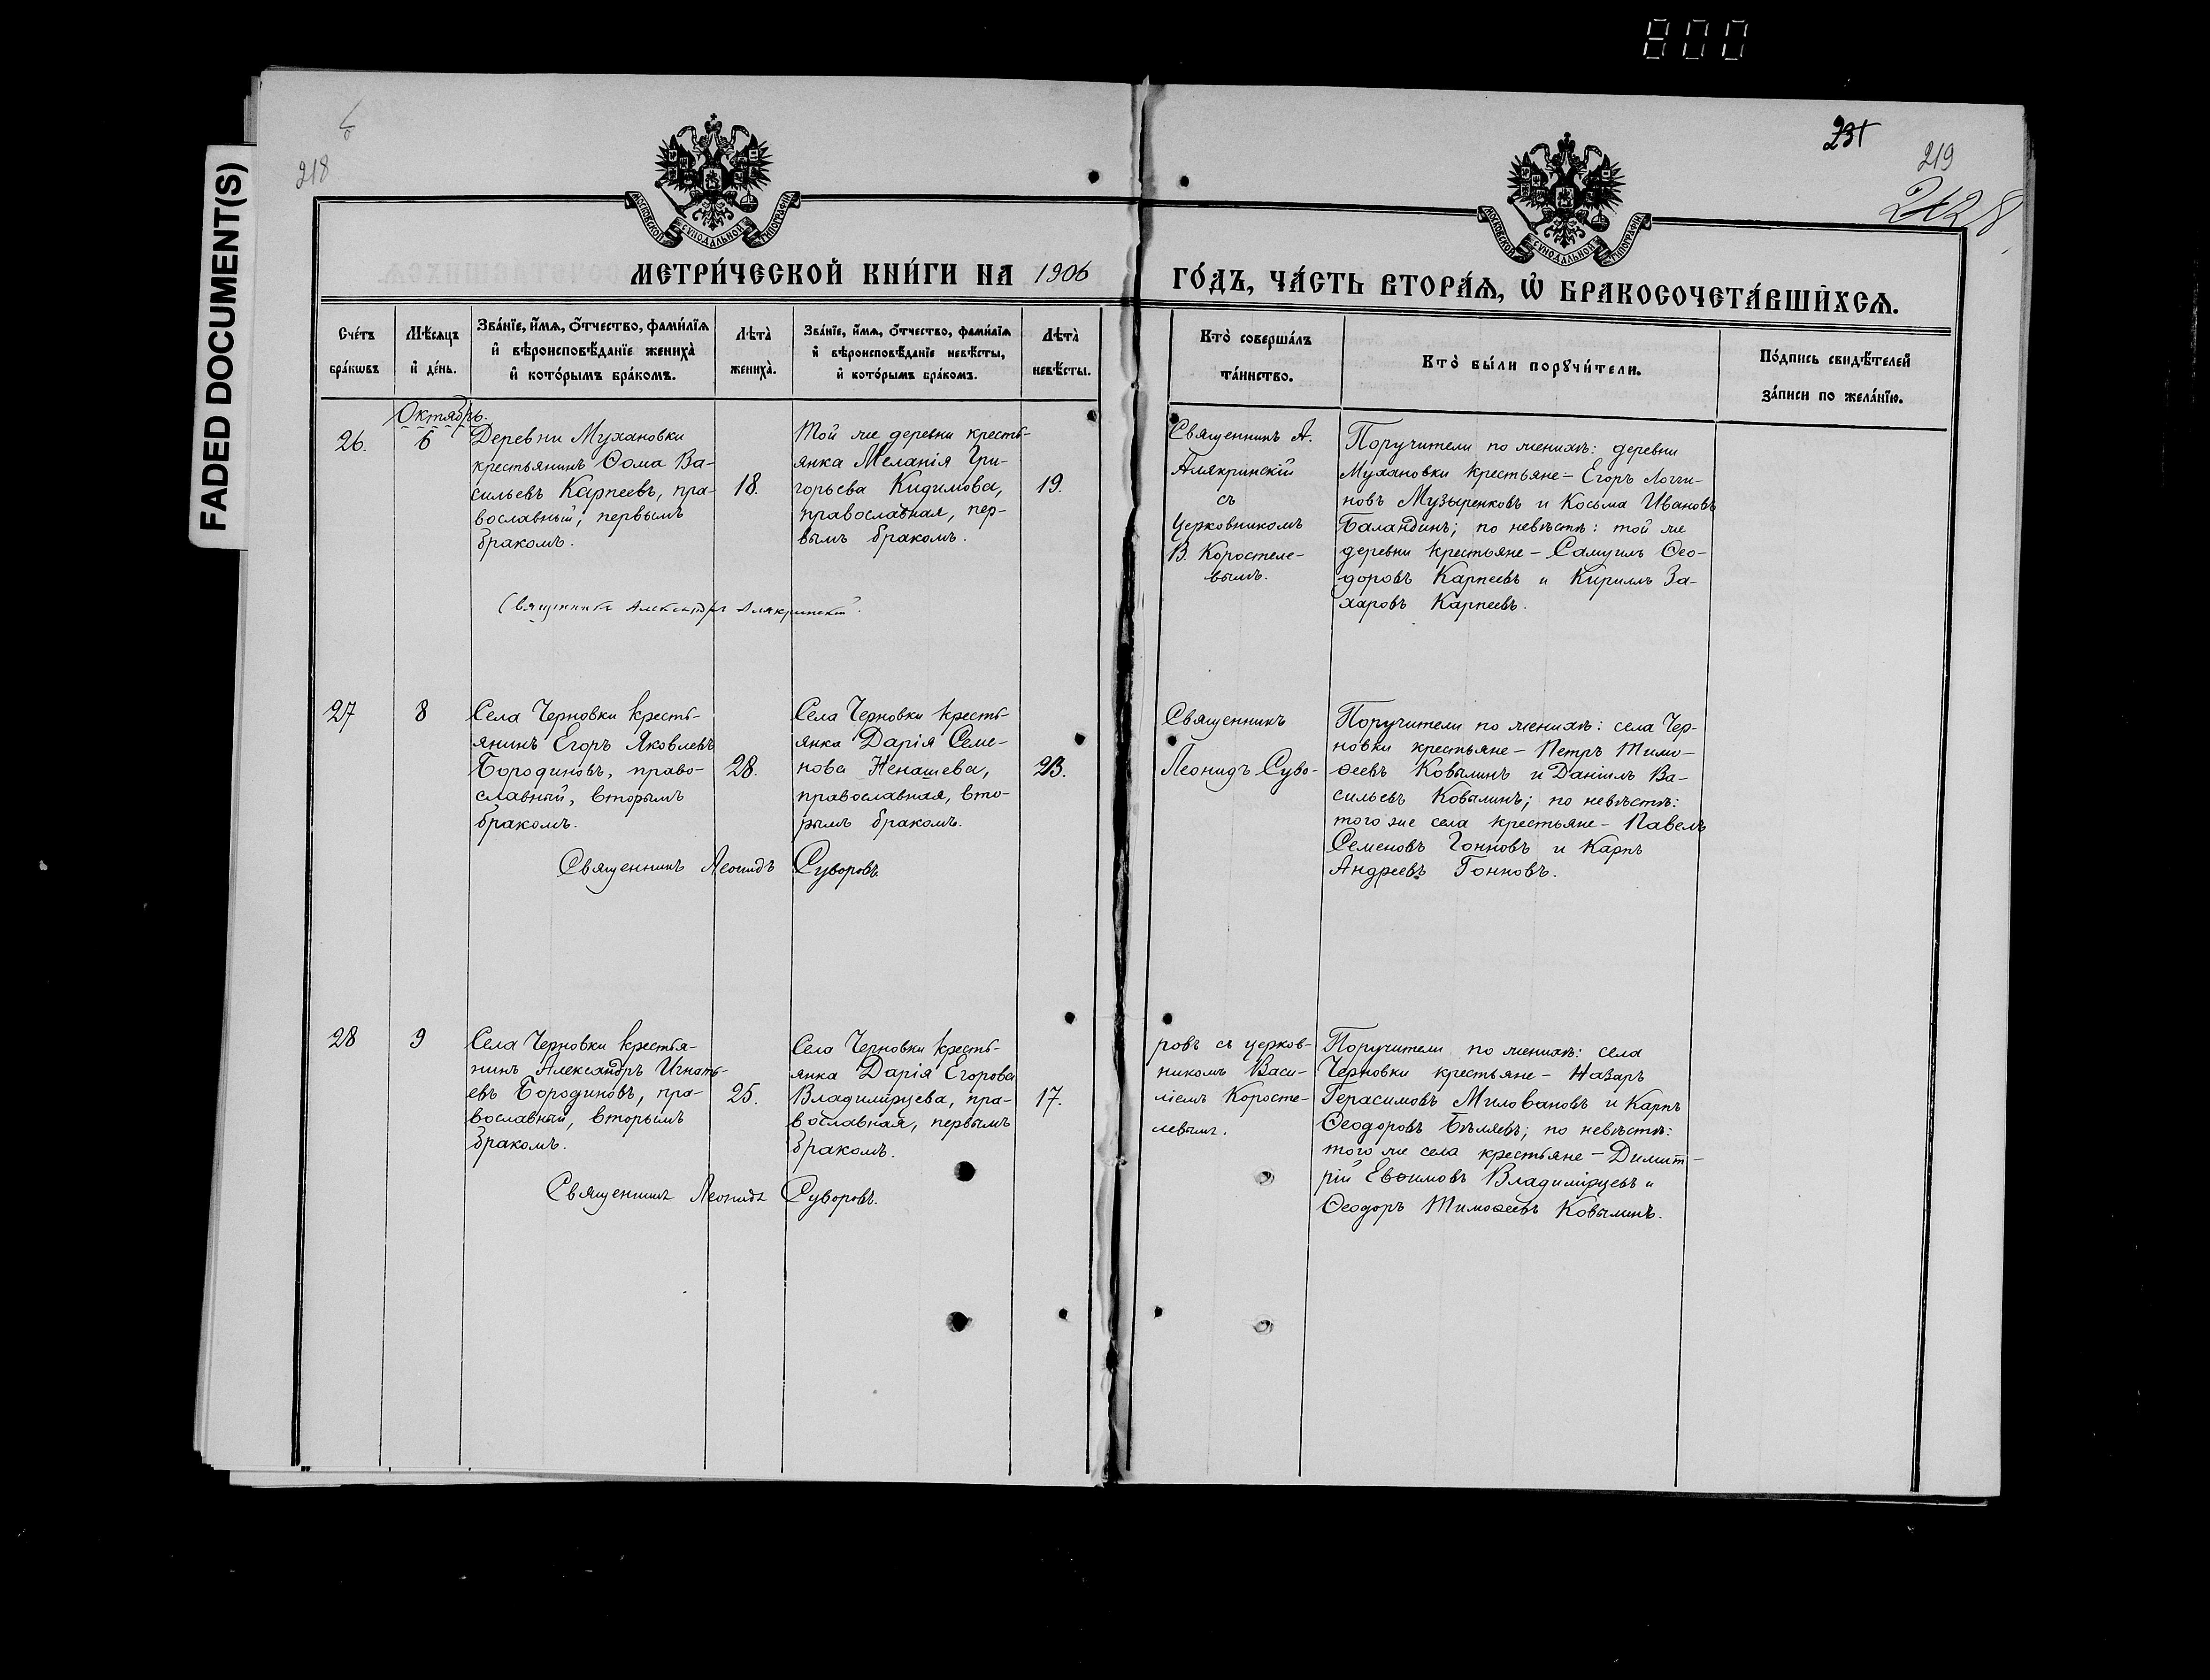 800
FADED DOCUMENT(S)
6
218
231
219
МОСКОВСКОЙ СѴНОДАЛЬНОЙ ТИПОГРАФІИ
МОСКОВСКОЙ СѴНОДАЛЬНОЙ ТИПОГРАФІИ
МЕТРИ́ЧЕСКОЙ КНИ́ГИ НА 1906
ГО́ДЪ, ЧА́СТЬ ВТОРА́Ѧ, Ѽ БРАКОСОЧЕТА́ВШИХСѦ.
Сче́тъ
бра́кѡвъ
Мѣ́сѧцъ
и҆ де́нь.
Зва́нїе, и҆́мѧ, ѻ҆́тчество, фами́лїѧ
и҆ вѣроисповѣ́данїе жениха̀
и҆ кото́рымъ бра́комъ.
Лѣта̀
жениха̀.
Зва́нїе, и҆́мѧ, ѻ҆́тчество, фами́лїѧ
и҆ вѣроисповѣ́данїе невѣ́сты,
и҆ кото́рымъ бра́комъ.
Лѣта̀
невѣ́сты.
Кто̀ соверша́лъ
та́инство.
Кто̀ бы́ли порꙋчи́тели.
По́дпись свидѣ́телей
за́писи по жела́нїю.
Октябрь.
26.
6
Деревни Мухановки
крестьянинъ Ѳома Ва-
сильевъ Карпеевъ, пра-
вославный, первымъ
бракомъ.
18.
Той же деревни кресть-
янка Меланія Гри-
горьева Кидимова,
православная, пер-
вымъ бракомъ.
19.
Священникъ А.
Алякринскій
съ
церковникомъ
В. Коростеле-
вымъ.
Поручители по женихѣ: деревни
Мухановки крестьяне – Егоръ Логги-
новъ Музыренковъ и Косьма Ивановъ
Баландинъ; по невѣстѣ: той же
деревни крестьяне – Самуилъ Ѳео-
доровъ Карпеевъ и Кириллъ За-
харовъ Карпеевъ.
Священникъ Александръ Алякринскій.
27
8
Села Черновки кресть-
янинъ Егоръ Яковлевъ
Бородиновъ, право-
славный, вторымъ
бракомъ.
28.
Села Черновки кресть-
янка Дарія Семе-
нова Ненашева,
православная, вто-
рымъ бракомъ.
23.
Священникъ
Леонидъ Суво-
Поручители по женихѣ: села Чер-
новки крестьяне – Петръ Тимо-
ѳеевъ Ковылинъ и Даніилъ Ва-
сильевъ Ковылинъ; по невѣстѣ:
того же села крестьяне – Павелъ
Семеновъ Гонновъ и Карпъ
Андреевъ Гонновъ.
Священникъ Леонидъ Суворовъ.
28
9
Села Черновки крестья-
нинъ Александръ Игнать-
евъ Бородиновъ, пра-
вославный, вторымъ
бракомъ.
25.
Села Черновки кресть-
янка Дарія Егорова
Владимірцева, пра-
вославная, первымъ
бракомъ.
17.
ровъ съ церков-
никомъ Васи-
ліемъ Коросте-
левымъ.
Поручители по женихѣ: села
Черновки крестьяне – Назаръ
Герасимовъ Миловановъ и Карпъ
Ѳеодоровъ Бѣляевъ; по невѣстѣ:
того же села крестьяне – Димит-
рій Евѳимовъ Владимірцевъ и
Ѳеодоръ Тимоѳеевъ Ковылинъ.
Священникъ Леонидъ Суворовъ.